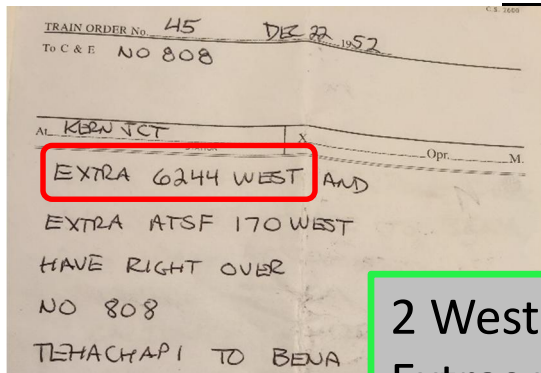 C.S. 2600
TRAIN ORDER No. 45 DEC 22 1952
To C & E NO 808
At KERN JCT X Opr. M.
STATION
EXTRA 6244 WEST AND
EXTRA ATSF 170 WEST
HAVE RIGHT OVER
NO 808
TEHACHAPI TO BENA
2 West